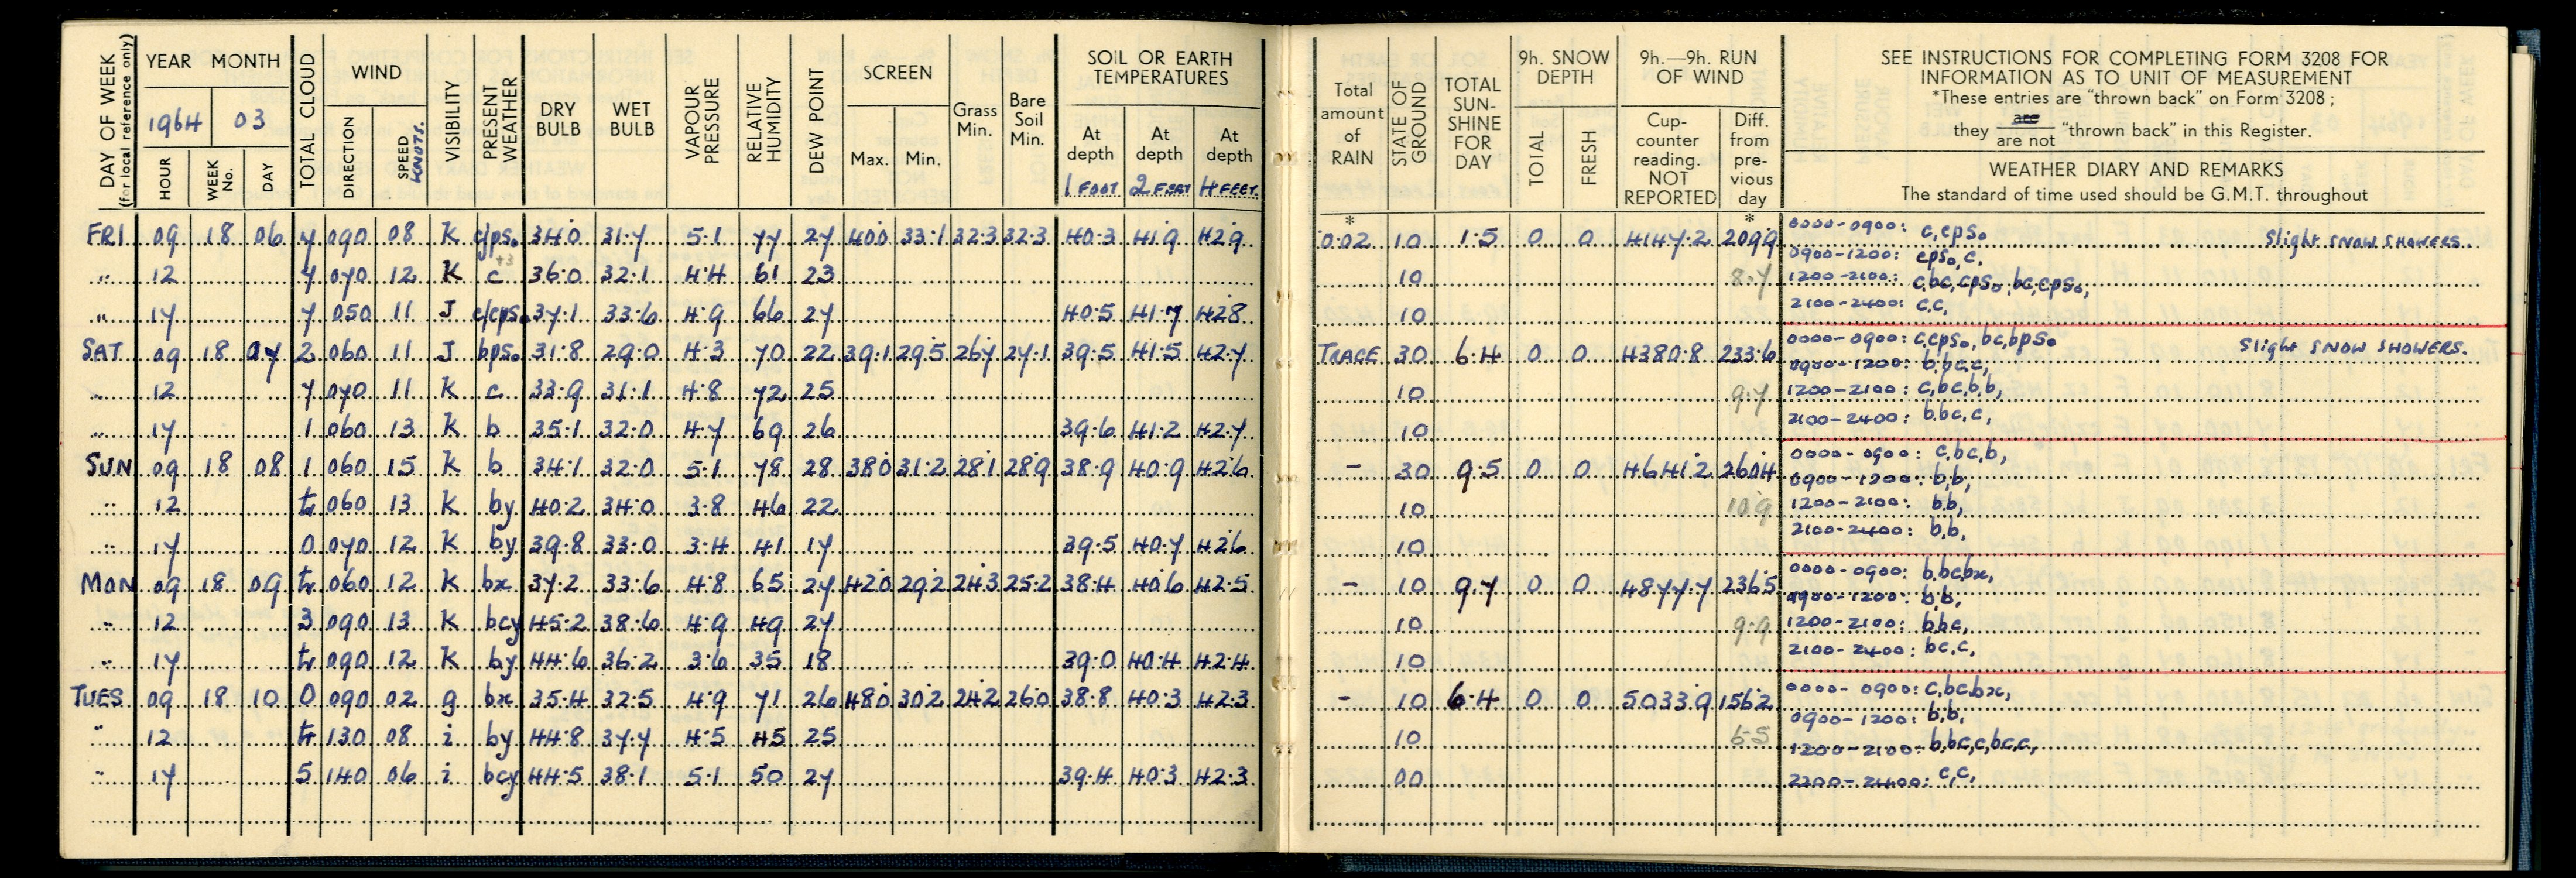 DAY OF WEEK (for local reference only)
YEAR MONTH
1964 03
HOUR WEEK No. DAY
TOTAL CLOUD
WIND
DIRECTION SPEED KNOTS.
VISIBILITY
PRESENT WEATHER
DRY BULB
WET BULB
VAPOUR PRESSURE
RELATIVE HUMIDITY
DEW POINT
SCREEN
Max. Min.
Grass Min.
Bare Soil Min.
SOIL OR EARTH TEMPERATURES
At depth 1 FOOT At depth 2 FEET At depth 4 FEET
Total amount of RAIN
STATE OF GROUND
TOTAL SUN- SHINE FOR DAY
9h. SNOW DEPTH
TOTAL FRESH
9h.—9h. RUN OF WIND
Cup- counter reading. NOT REPORTED
Diff. from pre- vious day
SEE INSTRUCTIONS FOR COMPLETING FORM 3208 FOR
INFORMATION AS TO UNIT OF MEASUREMENT
*These entries are "thrown back" on Form 3208 ;
they are / are not "thrown back" in this Register.
WEATHER DIARY AND REMARKS
The standard of time used should be G.M.T. throughout
* *
FRI 09 18 06 7 090 08 K c/pso 34.0 31.7 5.1 77 27 40.0 33.1 32.3 32.3 40.3 41.9 42.9 0.02 10 1.5 0 0 4147.2 209.9 0000-0900: c,cpso Slight SNOW SHOWERS.
0900-1200: cpso,c.
" 12 7 070 12 K c 36.0 32.1 4.4 61 23 10 8.7 1200-2100: c,bc,cpso,bc,cpso,
" 17 7 050 11 J c/cpso 37.1 33.6 4.9 66 27 40.5 41.7 42.8 10 2100-2400: c.c,
SAT 09 18 07 2 060 11 J bpso 31.8 29.0 4.3 70 22 39.1 29.5 26.7 27.1 39.5 41.5 42.7 TRACE 30 6.4 0 0 4380.8 233.6 0000-0900: c,cpso,bc,bpso Slight SNOW SHOWERS.
0900-1200: b,bc,c,
" 12 7 070 11 K c 33.9 31.1 4.8 72 25 10 9.7 1200-2100: c,bc,b,b,
" 17 1 060 13 K b 35.1 32.0 4.7 69 26 39.6 41.2 42.7 10 2100-2400: b,bc,c,
SUN 09 18 08 1 060 15 K b 34.1 32.0 5.1 78 28 38.0 31.2 28.1 28.9 38.9 40.9 42.6 - 30 9.5 0 0 4641.2 260.4 0000-0900: c,bc,b,
0900-1200: b,b,
" 12 tr 060 13 K by 40.2 34.0 3.8 46 22 10 10.9 1200-2100: b.b,
" 17 0 070 12 K by 39.8 33.0 3.4 41 17 39.5 40.7 42.6 10 2100-2400: b,b,
MON 09 18 09 tr 060 12 K bx 37.2 33.6 4.8 65 27 42.0 29.2 24.3 25.2 38.4 40.6 42.5 - 10 9.7 0 0 4877.7 236.5 0000-0900: b,bcbx,
0900-1200: b,b,
" 12 3 090 13 K bcy 45.2 38.6 4.9 49 27 10 9.9 1200-2100: b,bc,
" 17 tr 090 12 K by 44.6 36.2 3.6 35 18 39.0 40.4 42.4 10 2100-2400: bc,c,
TUES 09 18 10 0 090 02 g bx 35.4 32.5 4.9 71 26 48.0 30.2 24.2 26.0 38.8 40.3 42.3 - 10 6.4 0 0 5033.9 156.2 0000-0900: c,bc,bx,
0900-1200: b,b,
" 12 tr 130 08 i by 44.8 37.7 4.5 45 25 10 6.5 1200-2100: b,bc,c,bc,c,
" 17 5 140 06 i bcy 44.5 38.1 5.1 50 27 39.4 40.3 42.3 00 2200-2400: c,c,